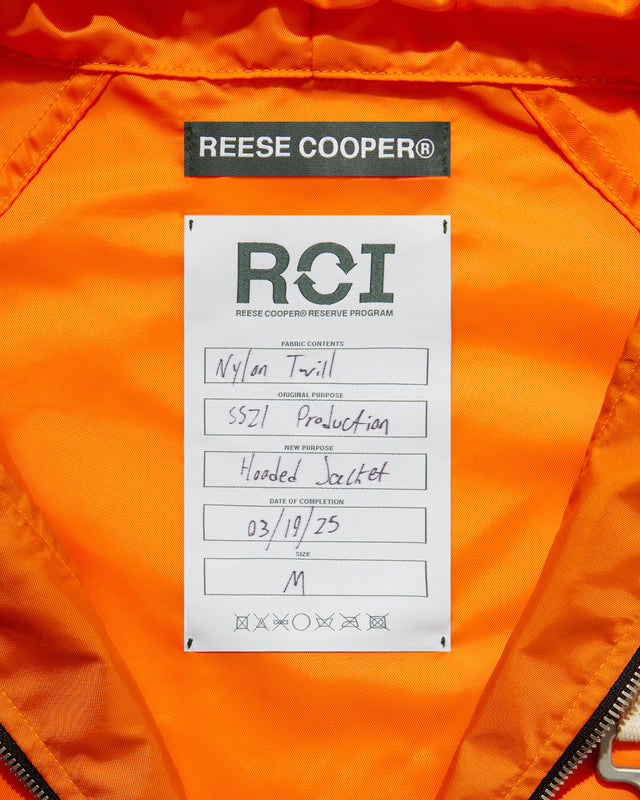 REESE COOPER®
RCI
REESE COOPER® RESERVE PROGRAM
FABRIC CONTENTS
Nylon Twill
ORIGINAL PURPOSE
SS21 Production
NEW PURPOSE
Hooded Jacket
DATE OF COMPLETION
03/19/25
SIZE
M